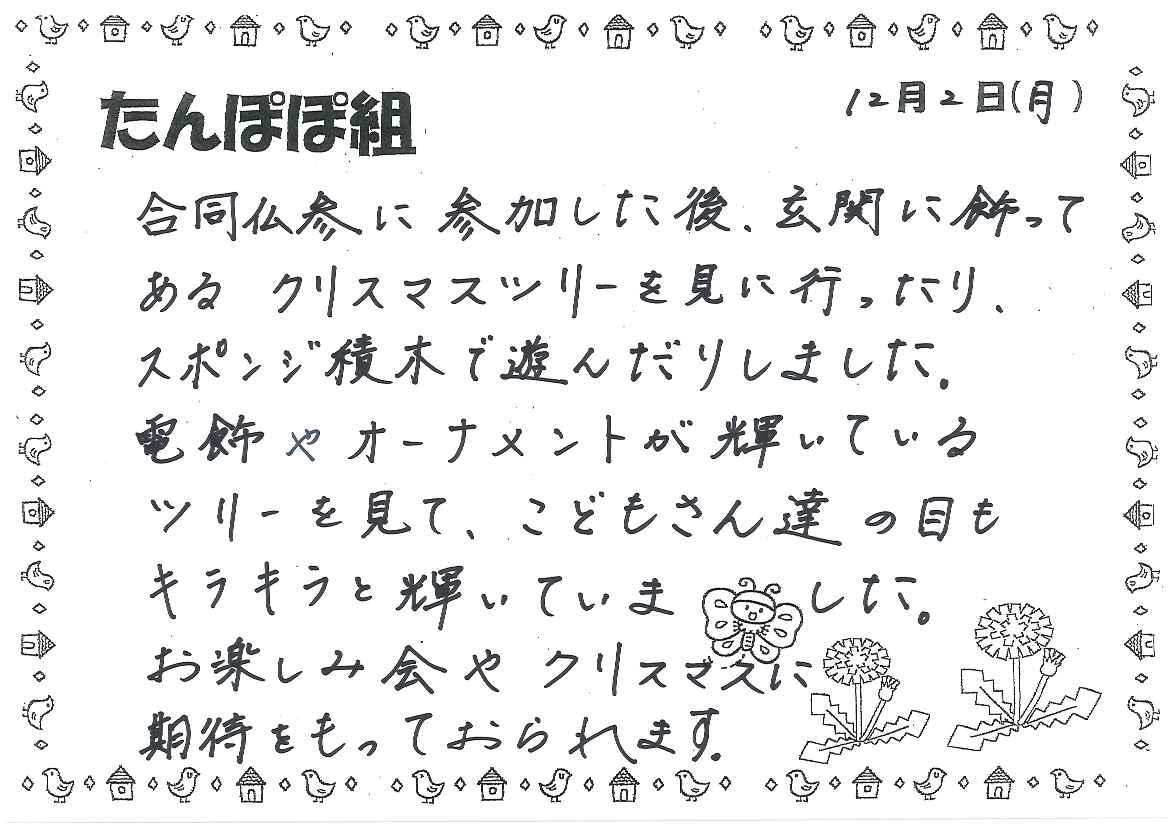 たんぽぽ組
12月2日(月)
合同仏参に参加した後、玄関に飾って
ある クリスマスツリーを見に行ったり、
スポンジ積木で遊んだりしました。
電飾やオーナメントが輝いている
ツリーを見て、こどもさん達の目も
キラキラと輝いていました。
お楽しみ会やクリスマスに
期待をもっておられます。